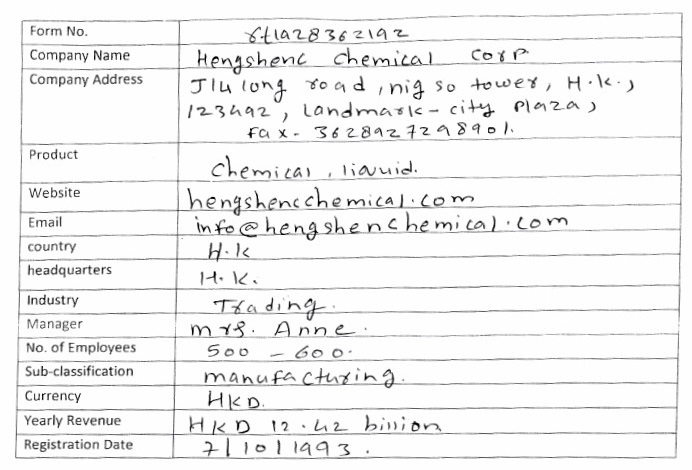 Form No. rt1a28362192
Company Name Hengshenc Chemical Corp
Company Address Jiulong road, nig so tower, H.k.,
123492, Landmark - city Plaza,
Fax - 3628927298901.
Product Chemical, liquid.
Website hengshencchemical.com
Email info@hengshenchemical.com
country H.k
headquarters H.k.
Industry Trading.
Manager mrs. Anne.
No. of Employees 500 - 600.
Sub-classification manufacturing.
Currency HKD.
Yearly Revenue HKD 12.42 billion
Registration Date 7/10/1993.